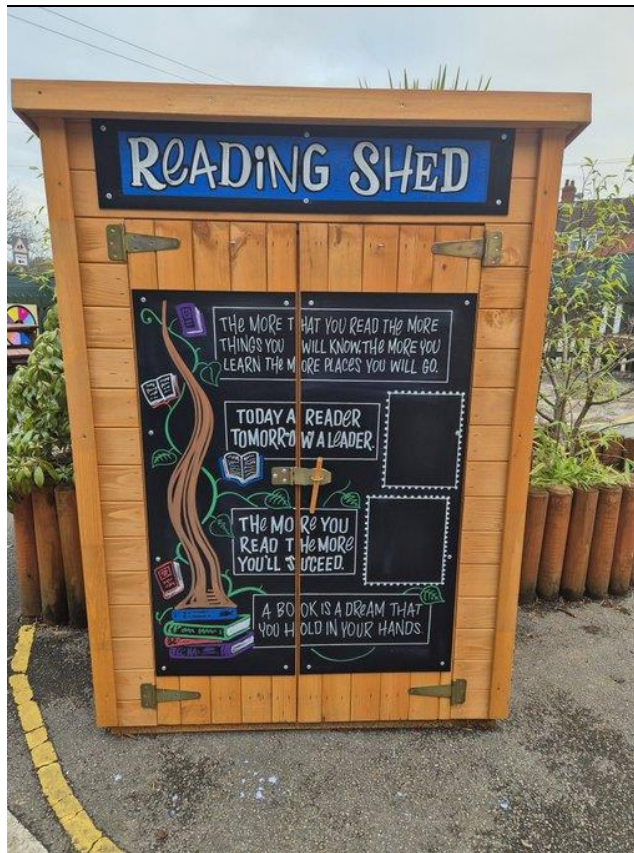 READING SHED
THE MORE THAT YOU READ THE MORE
THINGS YOU WILL KNOW. THE MORE YOU
LEARN THE MORE PLACES YOU WILL GO.
TODAY A READER
TOMORROW A LEADER.
THE MORE YOU
READ THE MORE
YOU'LL SUCCEED.
A BOOK IS A DREAM THAT
YOU HOLD IN YOUR HANDS